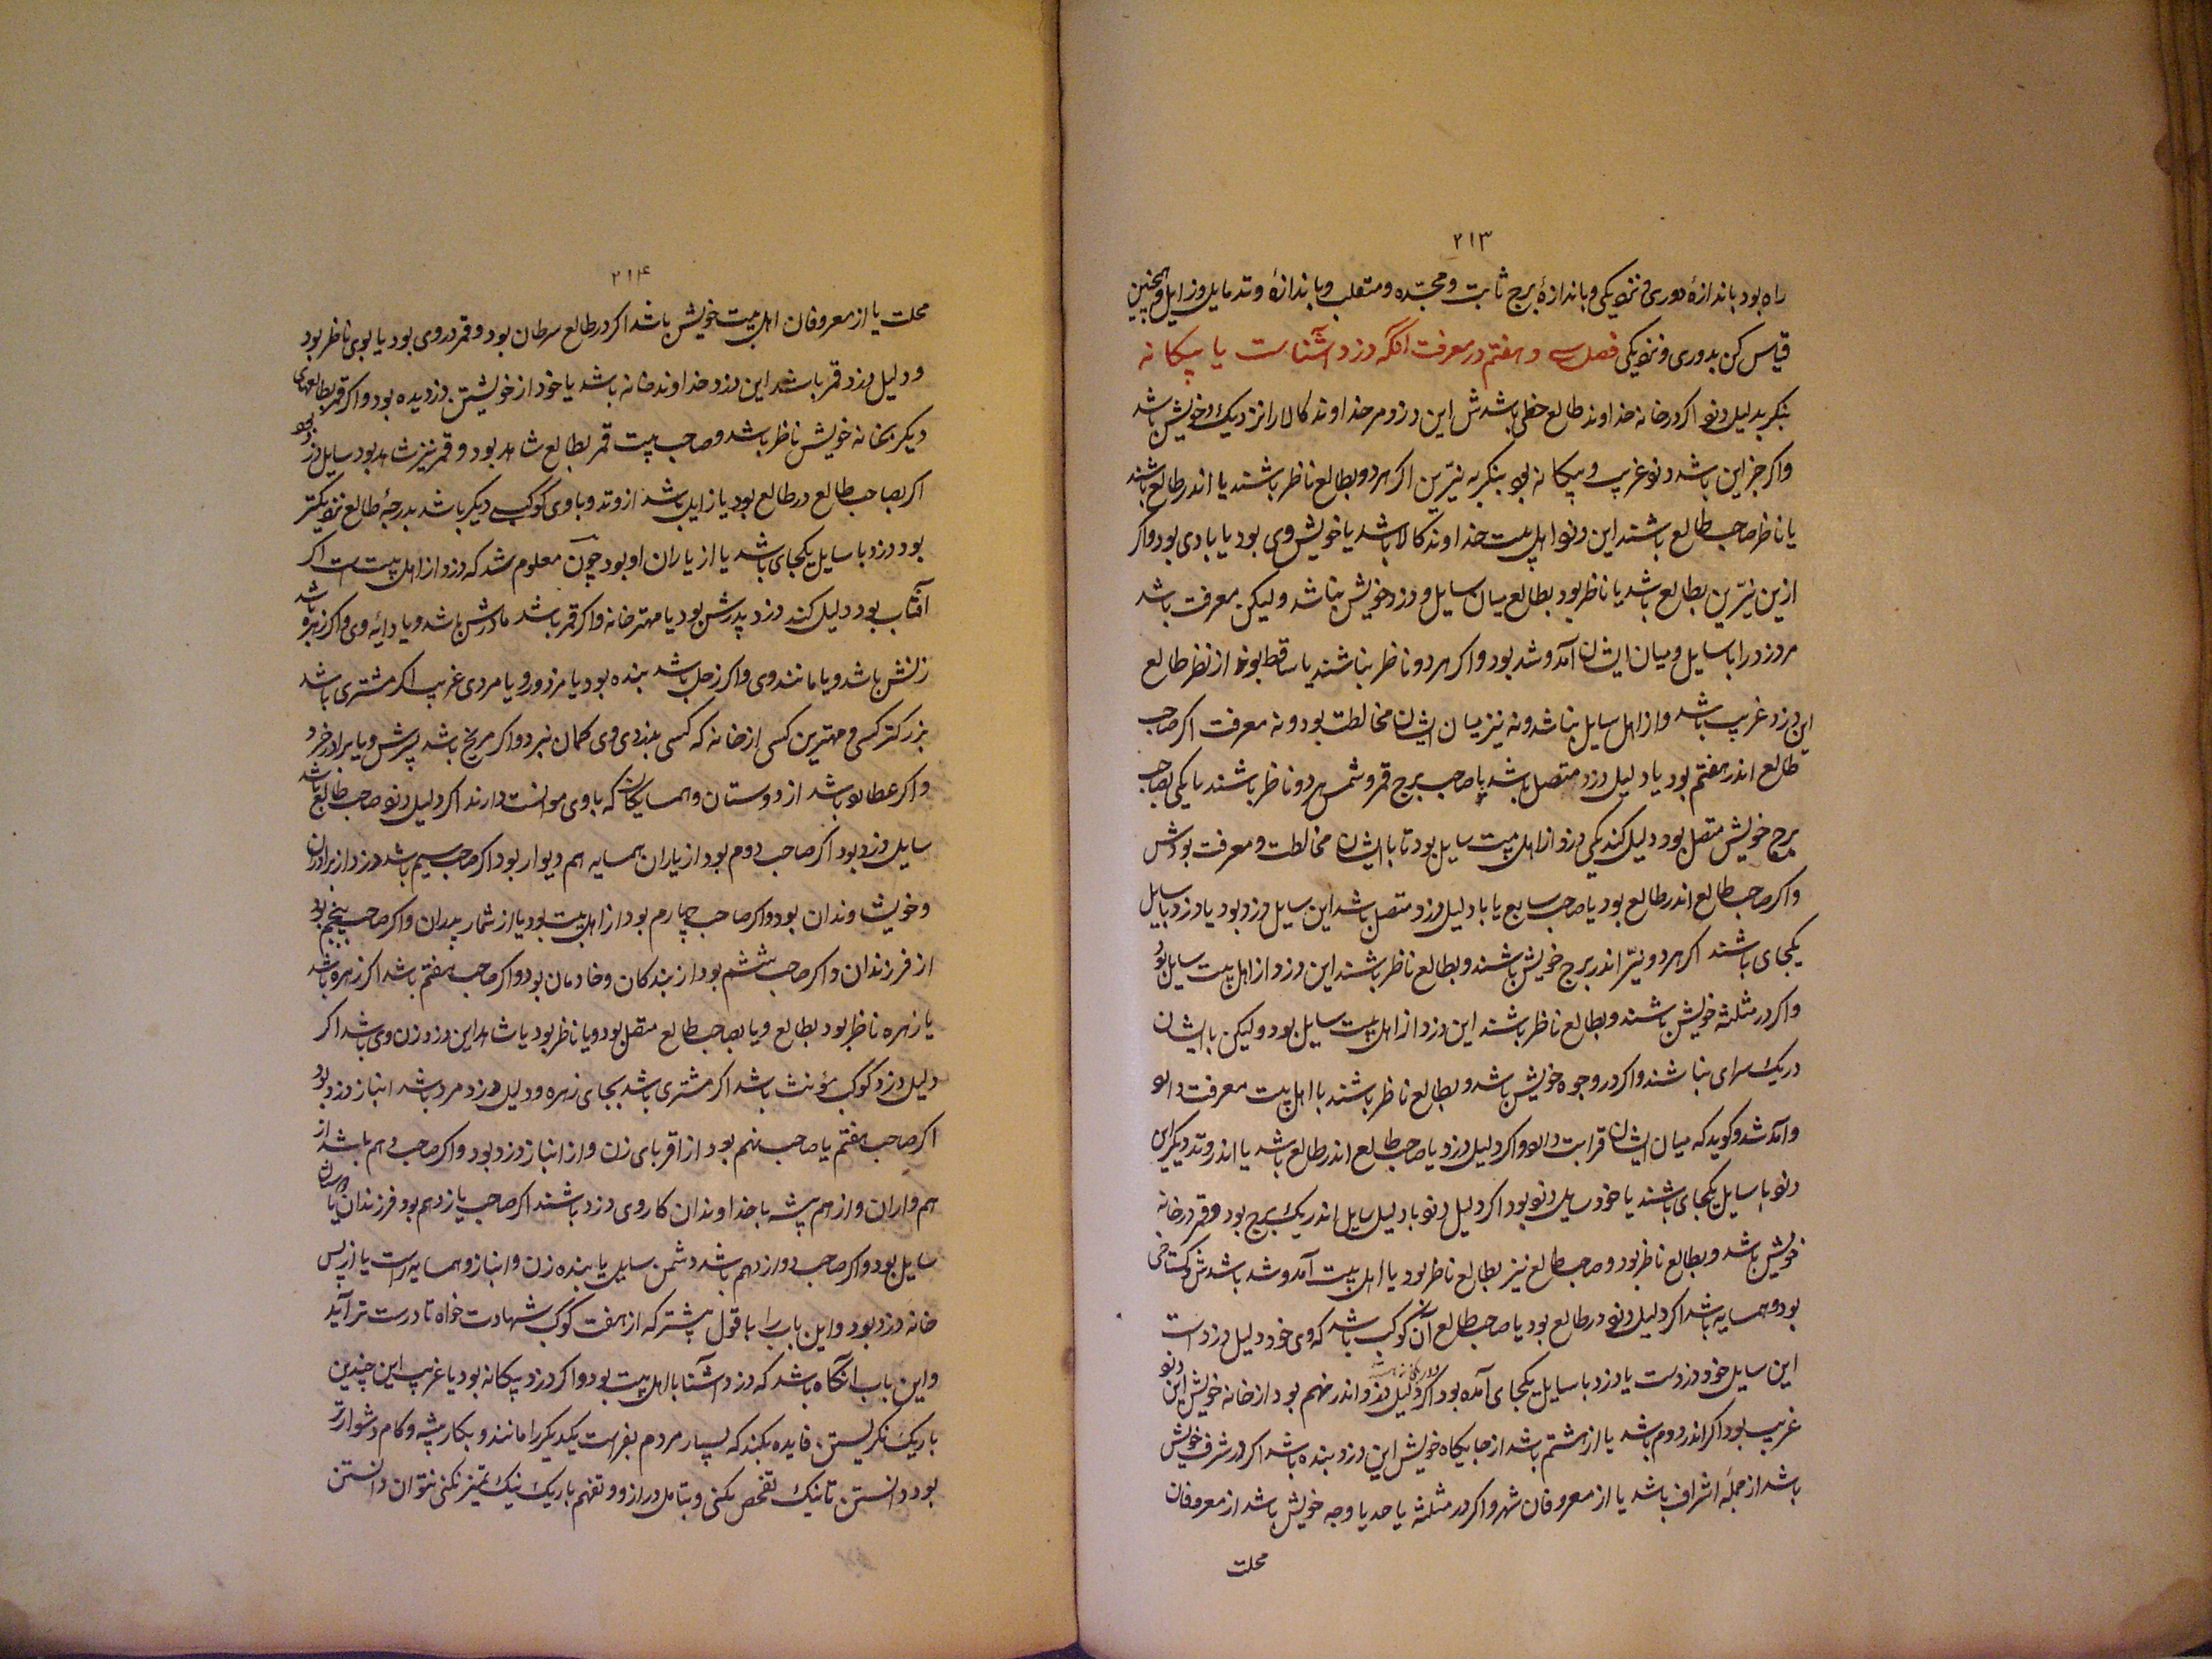 ۲۱۳
راه بود باندازهٔ دوری و نزدیکی و باندازهٔ برج ثابت و مجسّده و متقلب و باندازهٔ وتد مایل و زایل و همچنین
قیاس کن بدوری و نزدیکی فصل سی و هفتم در معرفت آنکه دزد آشناست یا بیکانه
بنکر بدلیل دزد اکر در خانه خداوند طالع حظی باشدش این دزد مر خداوند کالا را نزدیک و خویش باشد
واکر جز این باشد دزد غریب و بیکانه بود بنکر به نیّرین اکر هر دو بطالع ناظر باشند یا اندر طالع باشند
یا ناظر صاحب طالع باشند این دزد اهل بیت خداوند کالا باشد یا خویش وی بود یا با وی بود واکر
ازین نیّرین بطالع باشد یا ناظر بود بطالع میان سایل و دزد خویش نباشد ولیکن معرفت باشد
مر دزد را با سایل و میان ایشان آمد و شد بود واکر هر دو ناظر نباشند یا ساقط بوند از نظر طالع
این دزد غریب باشد و از اهل سایل نباشد و نه نیز میان ایشان مخالطت بود و نه معرفت اکر صاحب
طالع اندر هفتم بود یا دلیل دزد متصل باشد یا صاحب برج قمر و شمس هر دو ناظر باشند یا یکی بصاحب
برج خویش متصل بود دلیل کند یکی دزد از اهل بیت سایل بود تا با ایشان مخالطت و معرفت بودش
واکر صاحب طالع اندر طالع بود یا صاحب سابع یا با دلیل دزد متصل باشد این سایل دزد بود یا دزد با سایل
یکجای باشند اکر هر دو نیّر اندر برج خویش باشند و بطالع ناظر باشند این دزد از اهل بیت سایل بود
واکر در مثلثه خویش باشند و بطالع ناظر باشند این دزد از اهل بیت سایل بود ولیکن با ایشان
در یک سرای نباشند واکر در وجوه خویش باشد و بطالع ناظر باشند با اهل بیت معرفت دارد
و آمد شد و کوید که میان ایشان قرابت دارد واکر دلیل دزد یا صاحب طالع اندر طالع باشد یا اندر وتد دیکر این
دزد با سایل یکجای باشند یا خود سایل دزد بود اکر دلیل دزد با دلیل سایل اندر یک برج بود و قمر در خانه
خویش باشد و بطالع ناظر بود و صاحب طالع نیز بطالع ناظر بود یا اهل بیت آمد و شد باشدش و کستاخی
بود و همسایه باشد اکر دلیل دزد در طالع بود یا صاحب طالع آن کوکب باشد که وی خود دلیل دزد است
این سایل خود دزدست یا دزد با سایل یکجای آمده بود اکر دلیل دزد اندر نهم بود از خانه خویش این دزد
غریب بود اکر اندر دوم باشد یا از هشتم باشد از جایکاه خویش این دزد بنده باشد اکر در شرف خویش
باشد از جملهٔ اشراف باشد یا از معروفان شهر واکر در مثلثه یا حد یا وجه خویش باشد از معروفان
محلت
۲۱۴
محلت یا از معروفان اهل بیت خویش باشد اکر در طالع سرطان بود و قمر در وی بود یا بوی ناظر بود
و دلیل دزد قمر باشد این دزد خداوند خانه باشد یا خود از خویشتن دزدیده بود واکر قمر بطالعهای
دیکر بخانه خویش ناظر باشد و صاحب بیت قمر بطالع شاهد بود و قمر نیز شاهد بود سایل دزد بود
اکر بصاحب طالع در طالع بود یا زایل باشد از وتد و با وی کوکبی دیکر باشد بدرجهٔ طالع نزدیکتر
بود دزد با سایل یکجای باشد یا از یاران او بود چون معلوم شد که دزد از اهل بیت است اکر
آفتاب بود دلیل کند دزد پدرش بود یا مهتر خانه واکر قمر باشد مادرش باشد و یا دایهٔ وی واکر زهره باشد
زنش باشد و یا مانند وی واکر زحل باشد بنده بود یا مزدور و یا مردی غریب اکر مشتری باشد
بزرکتر کسی و مهترین کسی از خانه که کسی بدزدی وی کمان نبرد واکر مریخ باشد پسرش و یا برادر خرد
واکر عطارد باشد از دوستان و همسایکان که با وی موانست دارند اکر دلیل دزد صاحب طالع باشد
سایل دزد بود اکر صاحب دوم بود از یاران همسایه هم دیوار بود اکر صاحب سیم باشد دزد از برادران
و خویشاوندان بود واکر صاحب چهارم بود از اهل بیت بود یا از شمار پدران واکر صاحب پنجم بود
از فرزندان واکر صاحب ششم بود از بندکان و خادمان بود واکر صاحب هفتم باشد اکر زهره باشد
یا زهره ناظر بود بطالع و یا بصاحب طالع متصل بود و یا ناظر بود یا شاهد این دزد زن وی باشد اکر
دلیل دزد کوکب مؤنث باشد اکر مشتری باشد بجای زهره و دلیل دزد مرد باشد انباز دزد بود
اکر صاحب هفتم یا صاحب نهم بود از اقربای زن و از انباز دزد بود واکر صاحب دهم باشد از
هم واران و از هم پیشه با خداوندان کار وی دزد باشند اکر صاحب یازدهم بود فرزندان یا دوستان
سایل بود واکر صاحب دوازدهم باشد دشمن سایل یا بنده زن و انباز و همسایه راست یا از پس
خانه دزد بود و این باب را با قول پیشتر که از هفت کوکب شهادت خواه تا درست تر آید
و این باب آنکاه باشد که دزد آشنا با اهل بیت بود واکر دزد بیکانه بود یا غریب این چندین
باریک نکریستن فایده نکند که بسیار مردم بفراست یکدیکر را مانند و بکار پیشه و کام دشوارتر
بود دانستن تا نیک تفحص نکنی و بتأمل دراز و تفهم باریک نیک تمیز نکنی نتوان دانستن